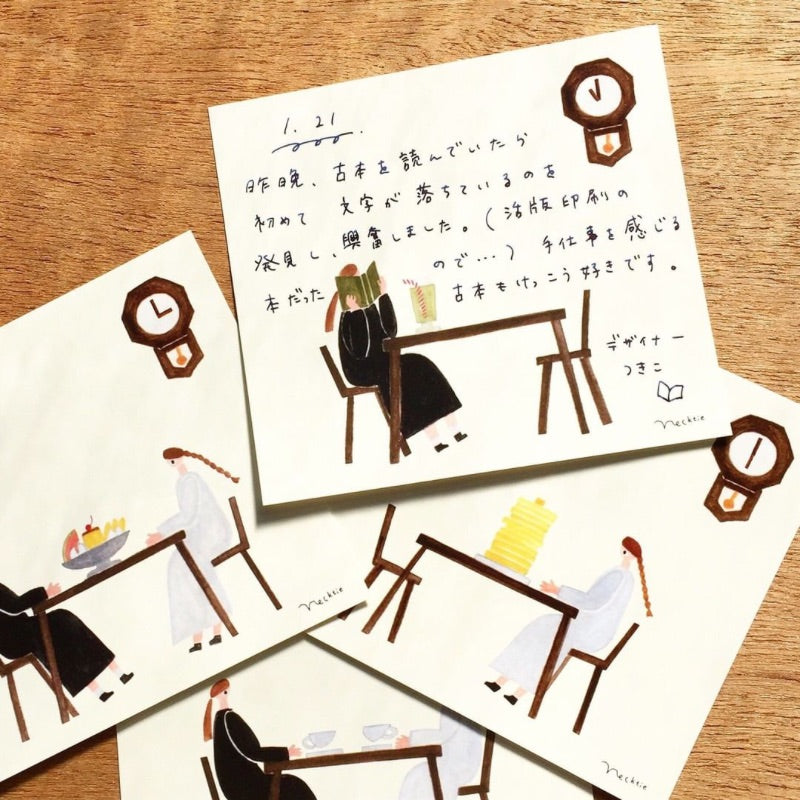 1. 21
昨晩、古本を読んでいたら
初めて 文字が落ちているのを
発見し、興奮しました。(活版印刷の
本だった ので…) 手仕事を感じる
古本もけっこう好きです。
デザイナー
つきこ
Necktie
Necktie
Necktie